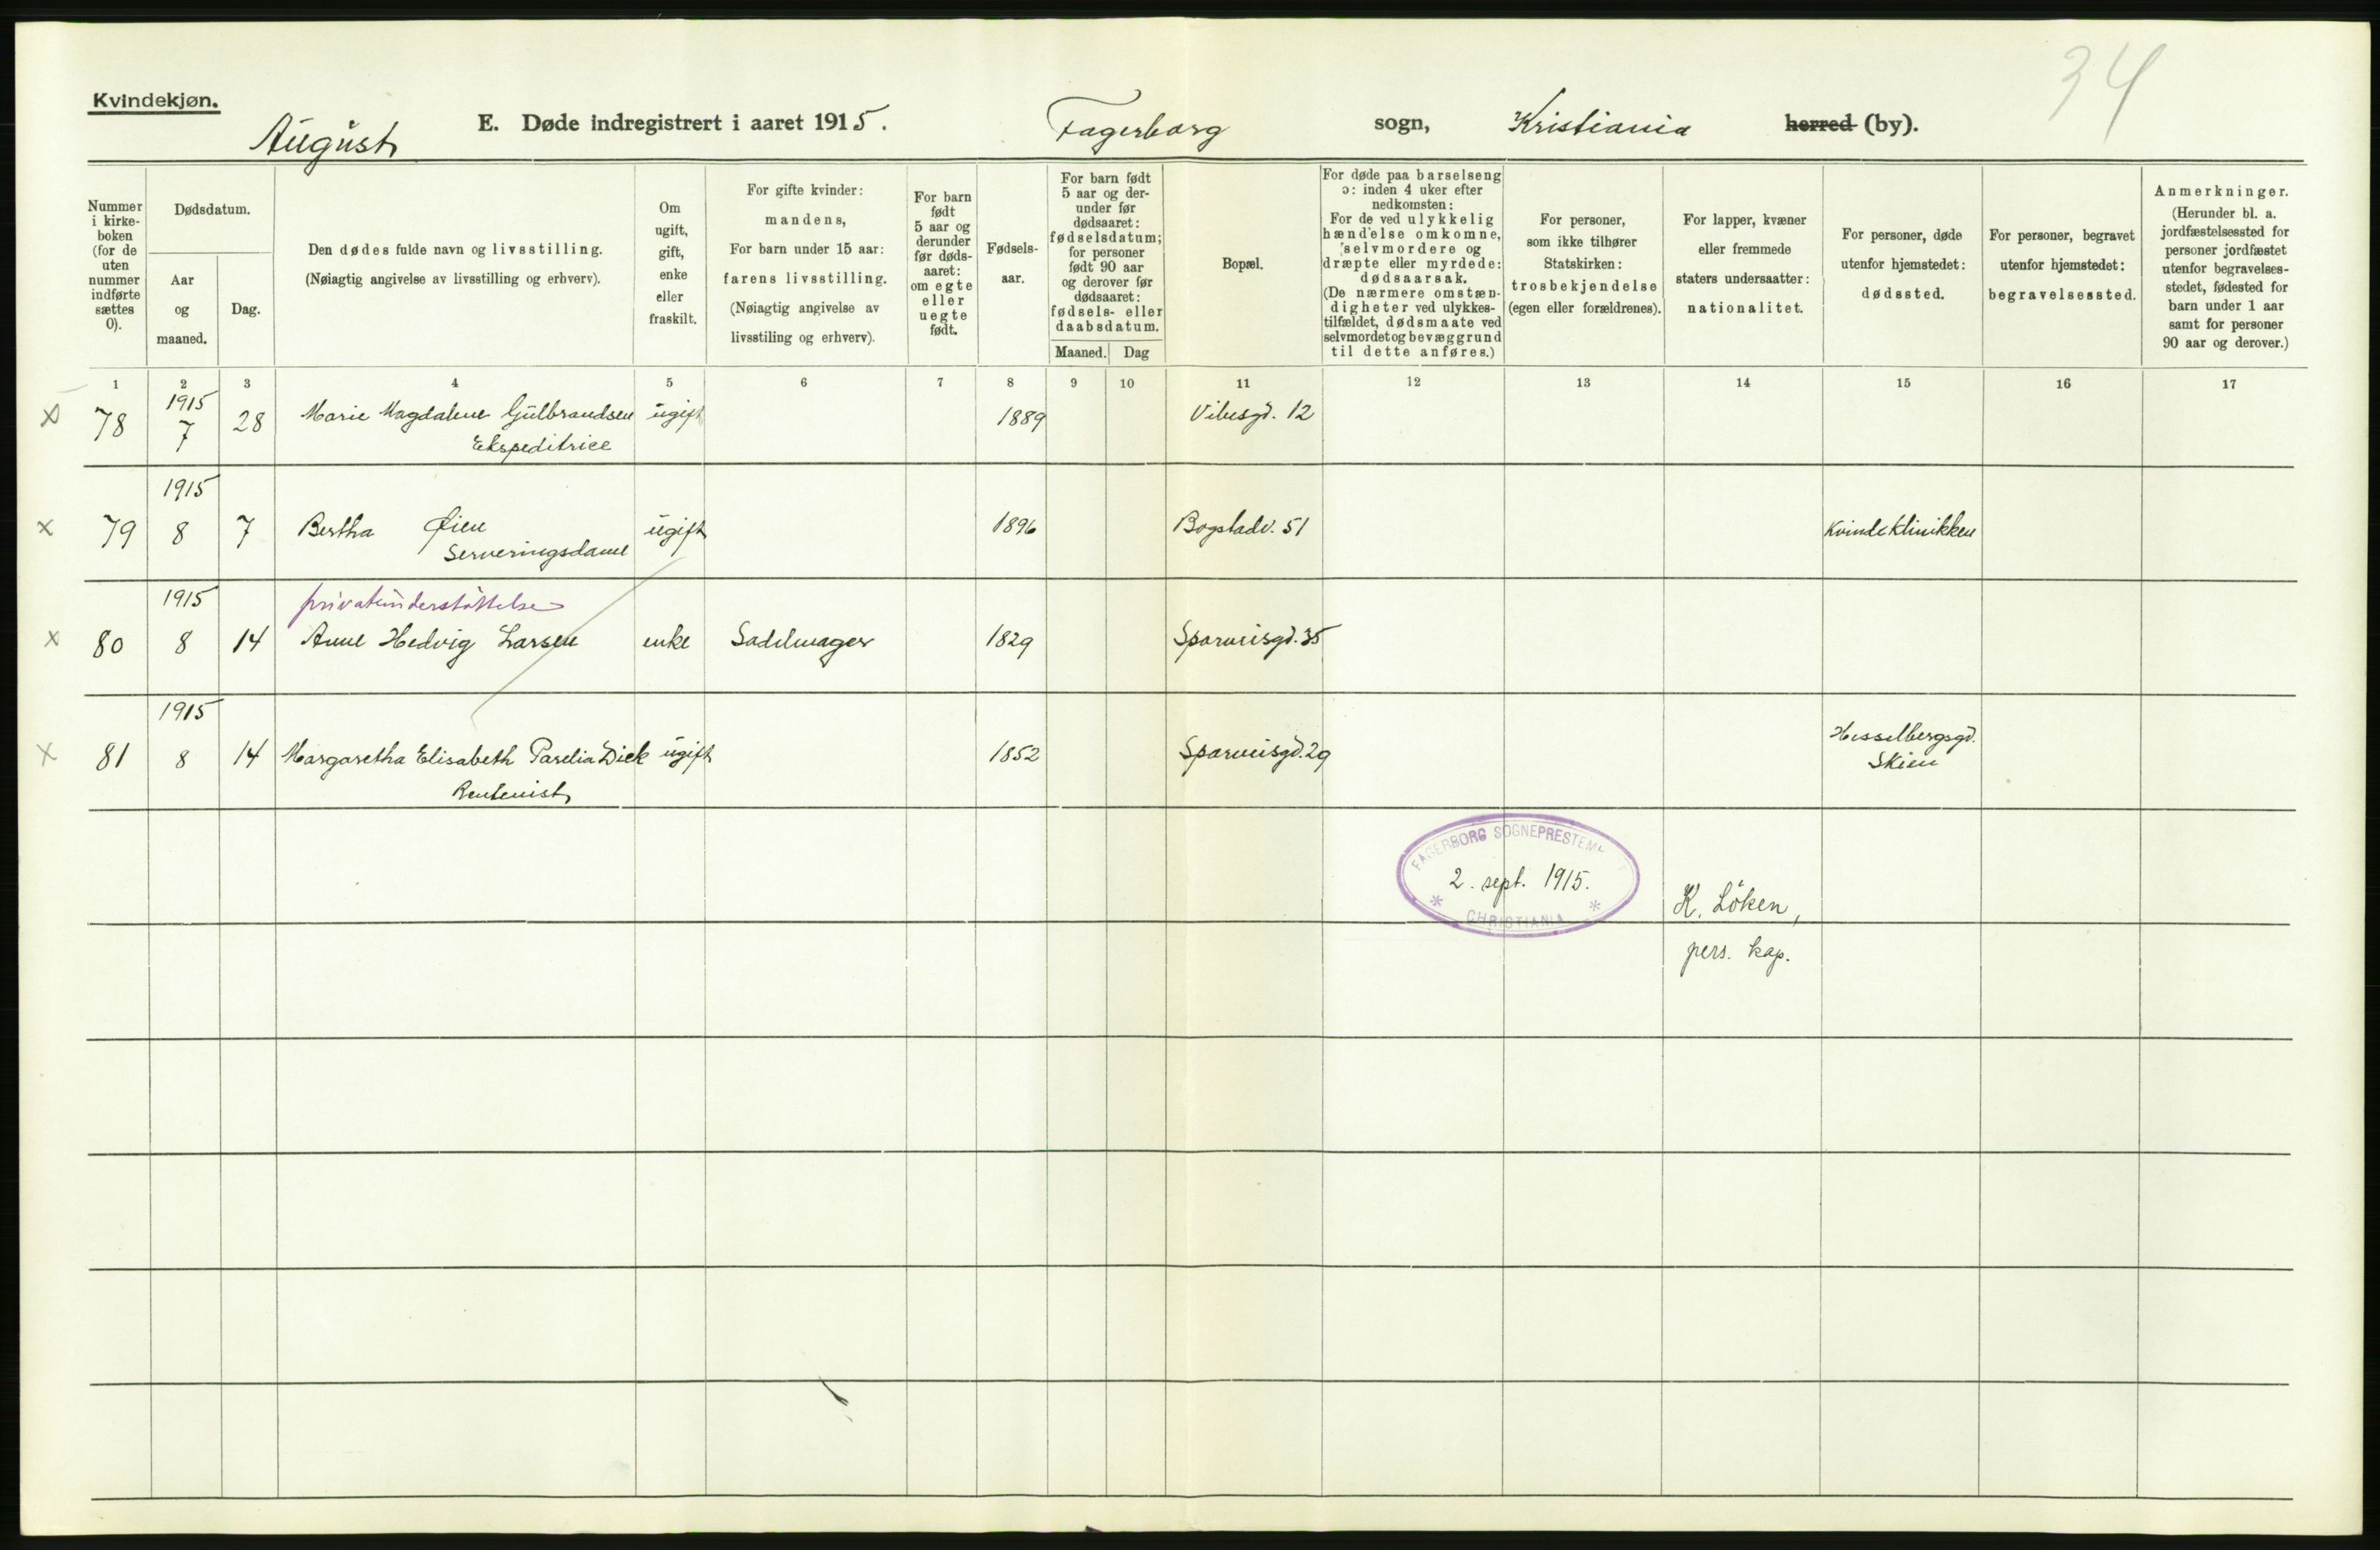 34
Kvindekjøn.
August
E. Døde indregistrert i aaret 1915.
Fagerborg sogn, Kristiania herred (by).
Nummer
i kirke-
boken
(for de
uten
nummer
indførte
sættes
0).
Dødsdatum.
Aar
og
maaned.
Dag.
Den dødes fulde navn og livsstilling.
(Nøiagtig angivelse av livsstilling og erhverv).
Om
ugift,
gift,
enke
eller
fraskilt.
For gifte kvinder:
mandens,
For barn under 15 aar:
farens livsstilling.
(Nøiagtig angivelse av
livsstiling og erhverv).
For barn
født
5 aar og
derunder
før døds-
aaret:
om egte
eller
uegte
født.
Fødsels-
aar.
For barn født
5 aar og der-
under før
dødsaaret:
fødselsdatum;
for personer
født 90 aar
og derover før
dødsaaret:
fødsels- eller
daabsdatum.
Maaned.
Dag
Bopæl.
For døde paa barselseng
ɔ: inden 4 uker efter
nedkomsten:
For de ved ulykkelig
hændelse omkomne,
selvmordere og
dræpte eller myrdede:
dødsaarsak.
(De nærmere omstæn-
digheter ved ulykkes-
tilfældet, dødsmaate ved
selvmordet og bevæggrund
til dette anføres.)
For personer,
som ikke tilhører
Statskirken:
trosbekjendelse
(egen eller forældrenes).
For lapper, kvæner
eller fremmede
staters undersaatter:
nationalitet.
For personer, døde
utenfor hjemstedet:
dødssted.
For personer, begravet
utenfor hjemstedet:
begravelsessted.
Anmerkninger.
(Herunder bl. a.
jordfæstelsessted for
personer jordfæstet
utenfor begravelses-
stedet, fødested for
barn under 1 aar
samt for personer
90 aar og derover.)
1 2 3 4 5 6 7 8 9 10 11 12 13 14 15 16 17
1915
x 78 7 28 Marie Magdalene Gulbrandsen ugift 1889 Vibesgd. 12
Ekspeditrice
1915
x 79 8 7 Bertha Øien ugift 1896 Bogstadv. 51 Kvindeklinikken
Serveringsdame
1915 privatunderstøttelse
x 80 8 14 Anne Hedvig Larsen enke Sadelmager 1829 Sporveisgd. 35
1915
x 81 8 14 Margaretha Elisabeth Parelia Dick ugift 1852 Sporveisgd. 29 Hesselbergsgd.
Skien
Rentenist
FAGERBORG SOGNEPRESTEM
2. sept. 1915.
* CHRISTIANIA *
K. Löken,
pers. kap.